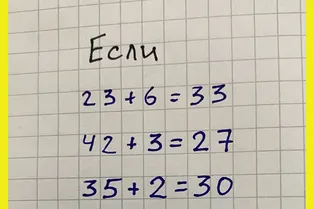 Если
23+6=33
42+3=27
35+2=30